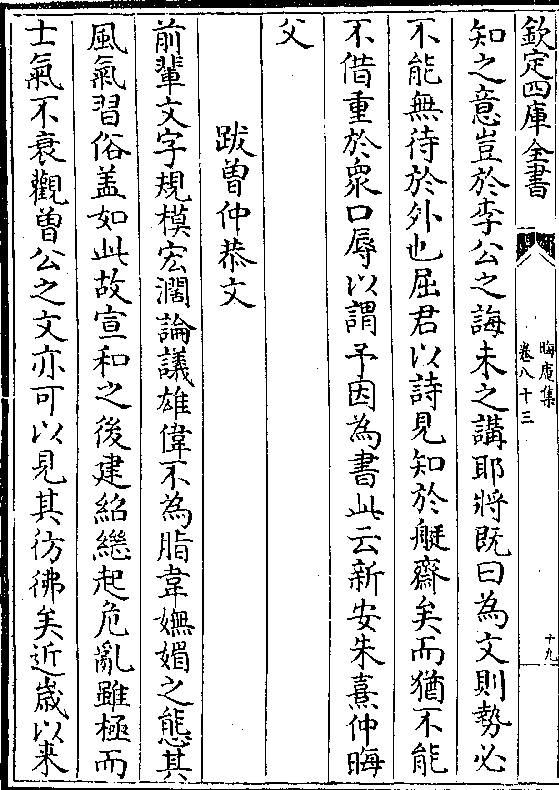 欽定四庫全書
晦庵集
卷八十三
十九
知之意豈於李公之誨未之講耶將既曰為文則勢必
不能無待於外也屈君以詩見知於艇齋矣而猶不能
不借重於衆口辱以謂予因為書此云新安朱熹仲晦
父
跋曾仲恭文
前輩文字規模宏濶論議雄偉不為脂韋嫵媚之態其
風氣習俗盖如此故宣和之後建紹繼起危亂雖極而
士氣不衰觀曾公之文亦可以見其彷彿矣近歳以来